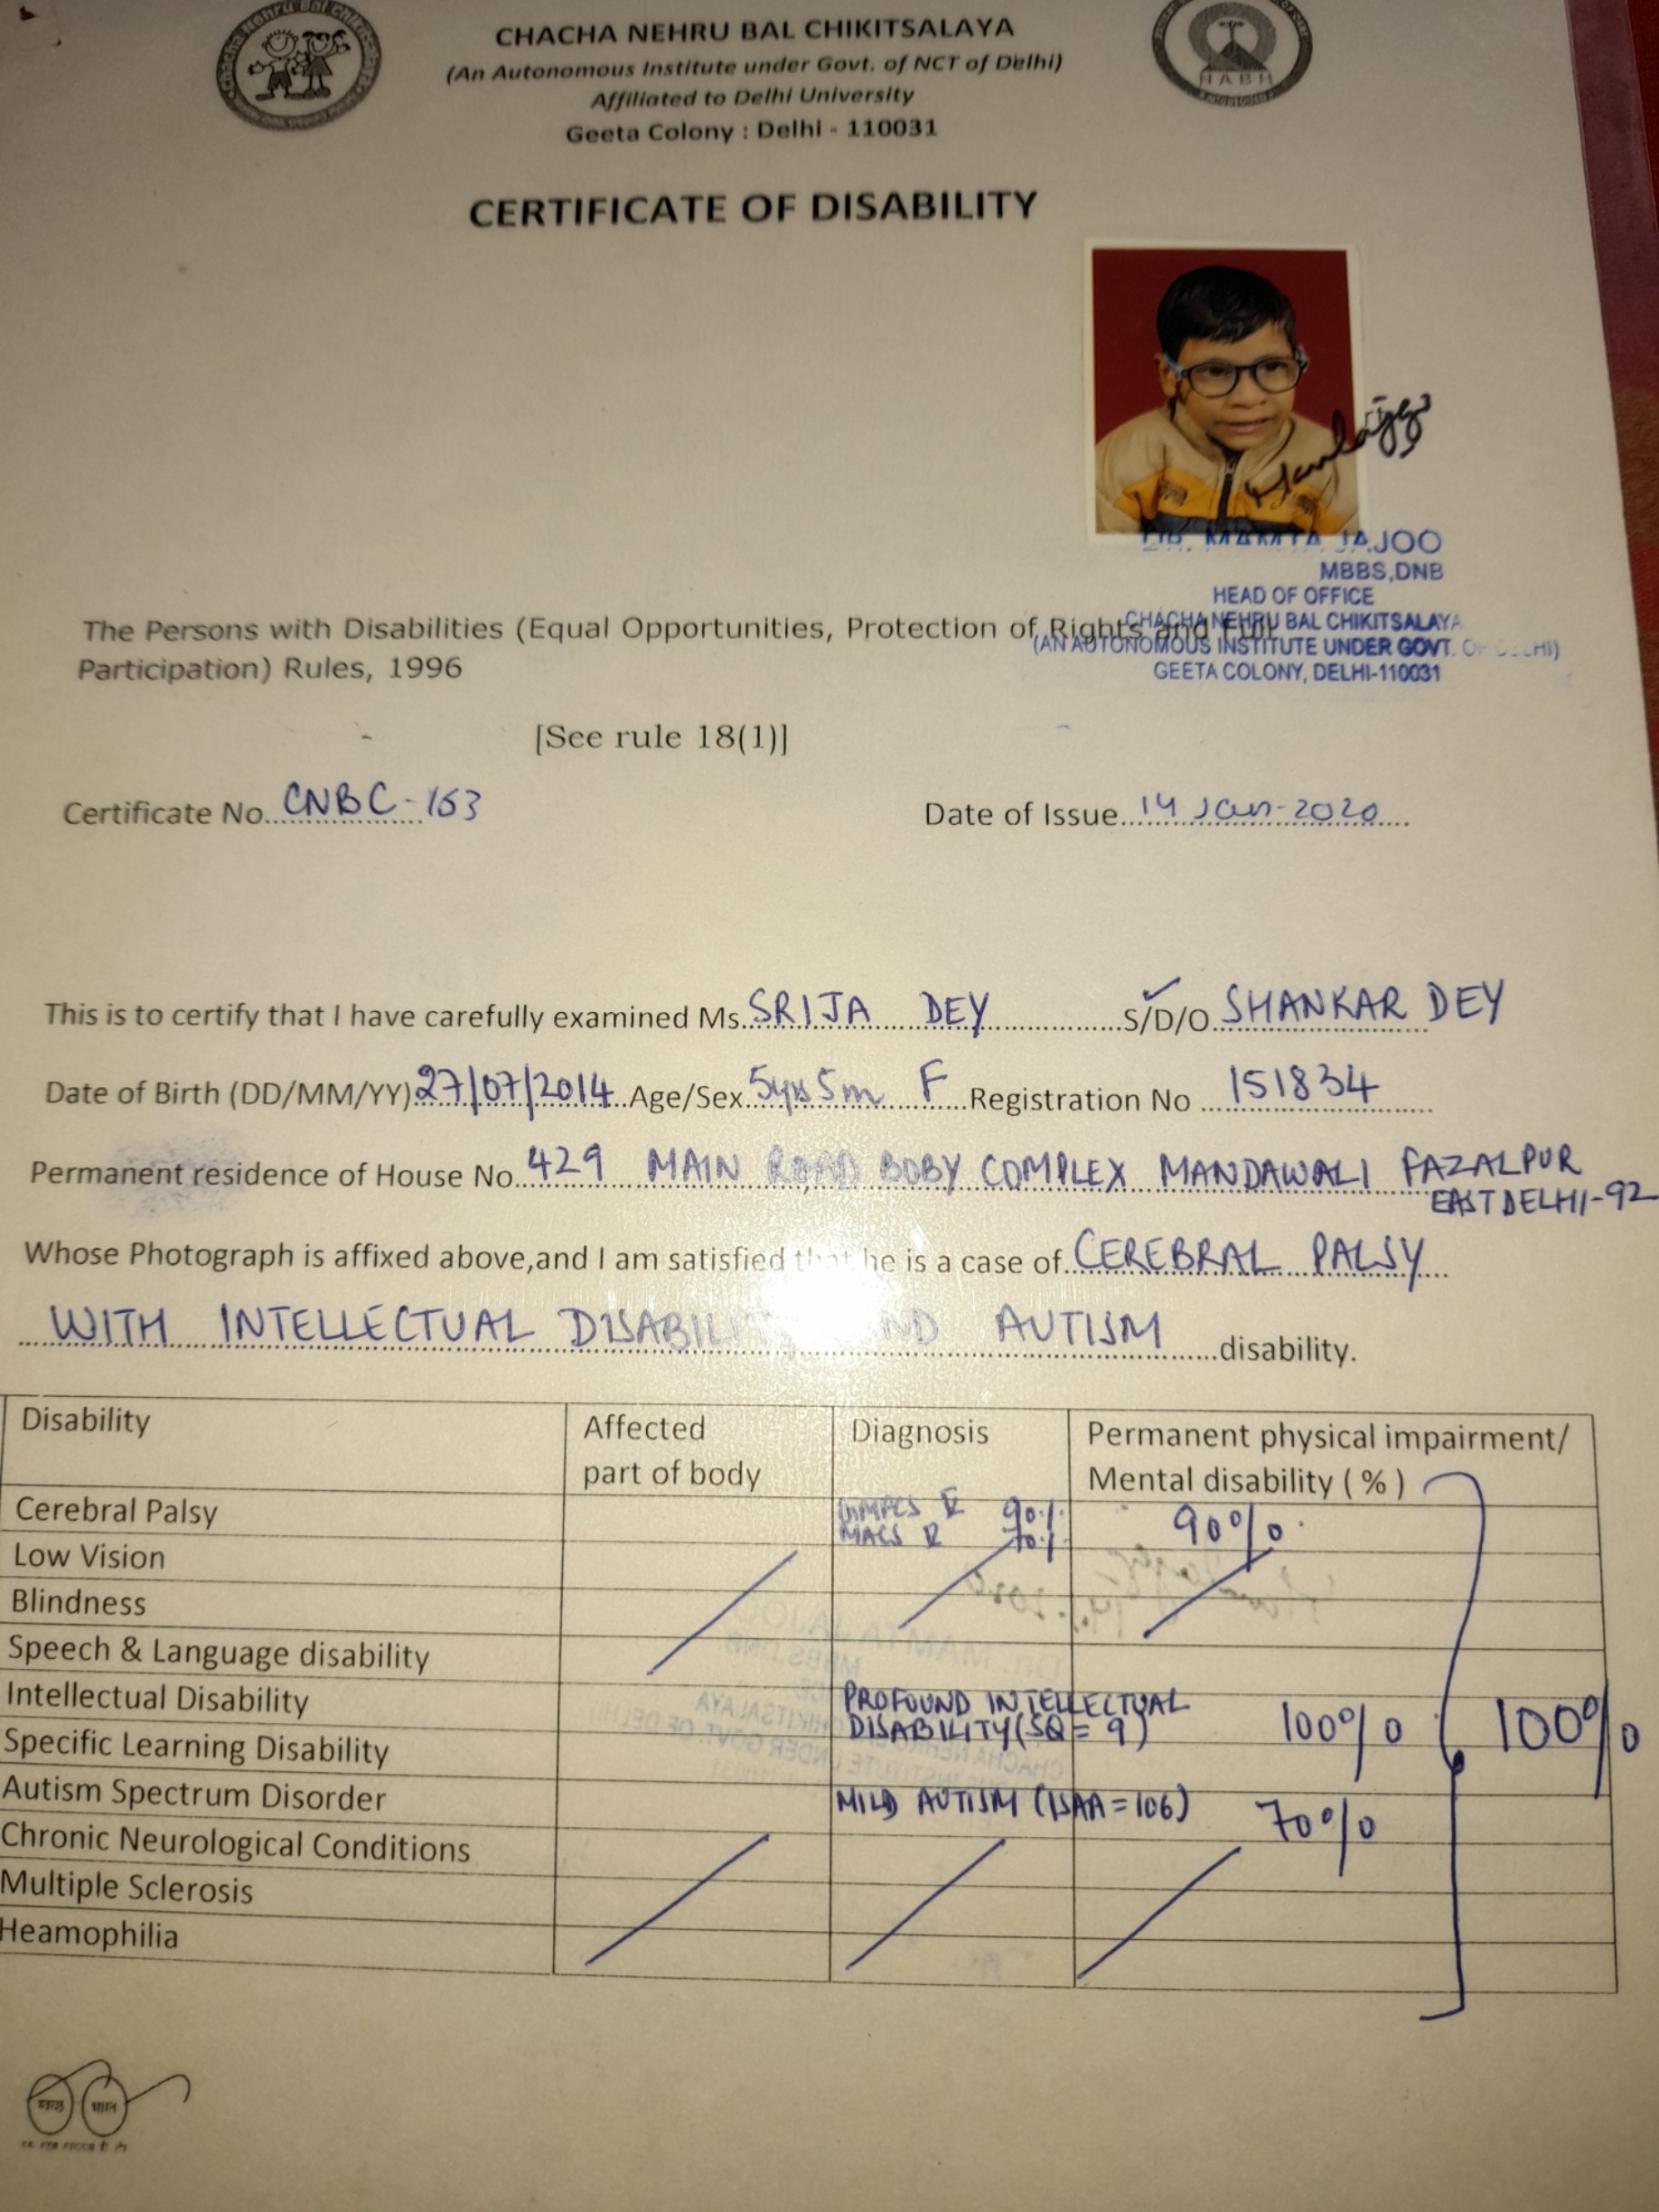 Chacha Nehru Bal Chikitsalaya
CHACHA NEHRU BAL CHIKITSALAYA
(An Autonomous Institute under Govt. of NCT of Delhi)
Affiliated to Delhi University
Geeta Colony : Delhi - 110031
NABH
CERTIFICATE OF DISABILITY
DR. MAMTA JAJOO
MBBS,DNB
HEAD OF OFFICE
CHACHA NEHRU BAL CHIKITSALAYA
(AN AUTONOMOUS INSTITUTE UNDER GOVT. OF DELHI)
GEETA COLONY, DELHI-110031
The Persons with Disabilities (Equal Opportunities, Protection of Rights and Full
Participation) Rules, 1996
[See rule 18(1)]
Certificate No. CNBC-163 Date of Issue 14 Jan-2020
This is to certify that I have carefully examined Ms. SRIJA DEY S/D/O SHANKAR DEY
Date of Birth (DD/MM/YY) 27/07/2014 Age/Sex 5yrs 5m F Registration No 151834
Permanent residence of House No. 429 MAIN ROAD BOBY COMPLEX MANDAWALI FAZALPUR
EAST DELHI-92
Whose Photograph is affixed above,and I am satisfied that he is a case of CEREBRAL PALSY
WITH INTELLECTUAL DISABILITY AND AUTISM disability.
Disability Affected part of body Diagnosis Permanent physical impairment/ Mental disability ( % )
Cerebral Palsy GMFCS 90% MACS 70% 90%
Low Vision
Blindness
Speech & Language disability
Intellectual Disability PROFOUND INTELLECTUAL DISABILITY (SQ = 9) 100% 100%
Specific Learning Disability
Autism Spectrum Disorder MILD AUTISM (ISAA = 106) 70%
Chronic Neurological Conditions
Multiple Sclerosis
Heamophilia